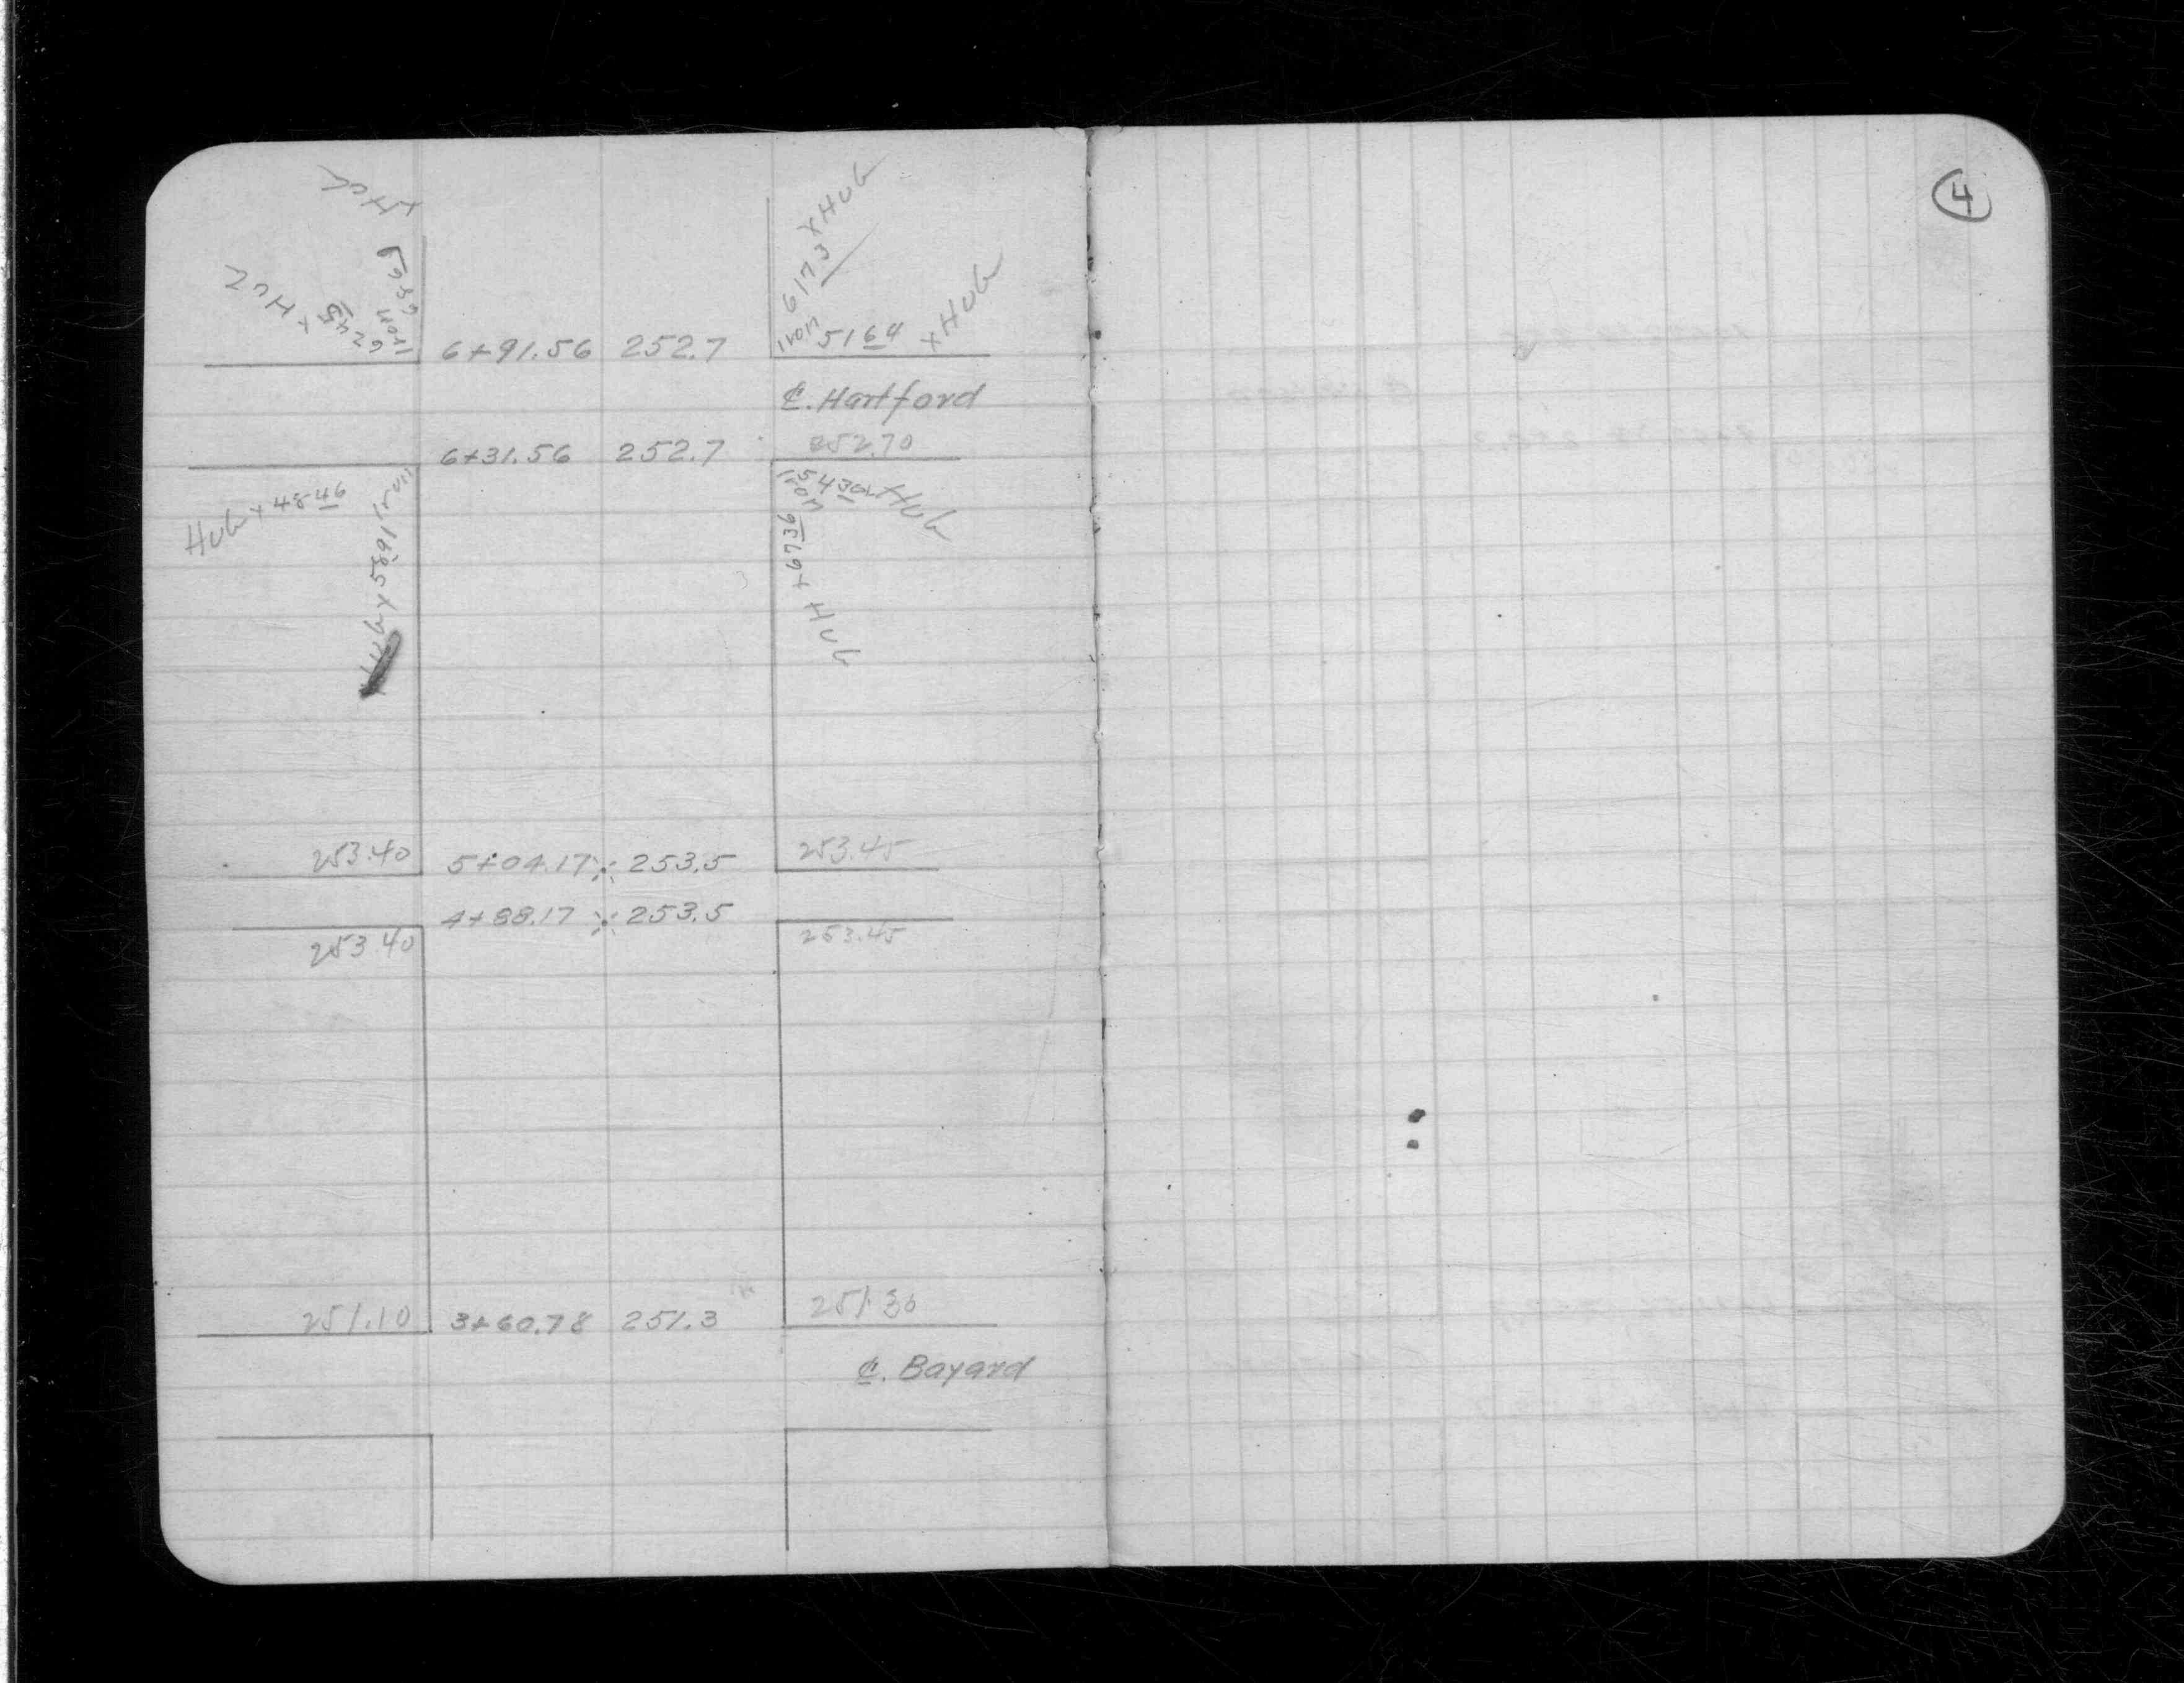 4
x Hub
x Hub
Iron
6+91.56 252.7
Iron 6173 x Hub
5164 x Hub
₵. Hartford
6+31.56 252.7 252.70
Hub x 4846
Iron
Iron
x Hub
x Hub
253.40 5+04.17 253.5 253.45
4+88.17 253.5
253.40 253.45
251.10 3+60.78 251.3 251.30
₵. Bayard